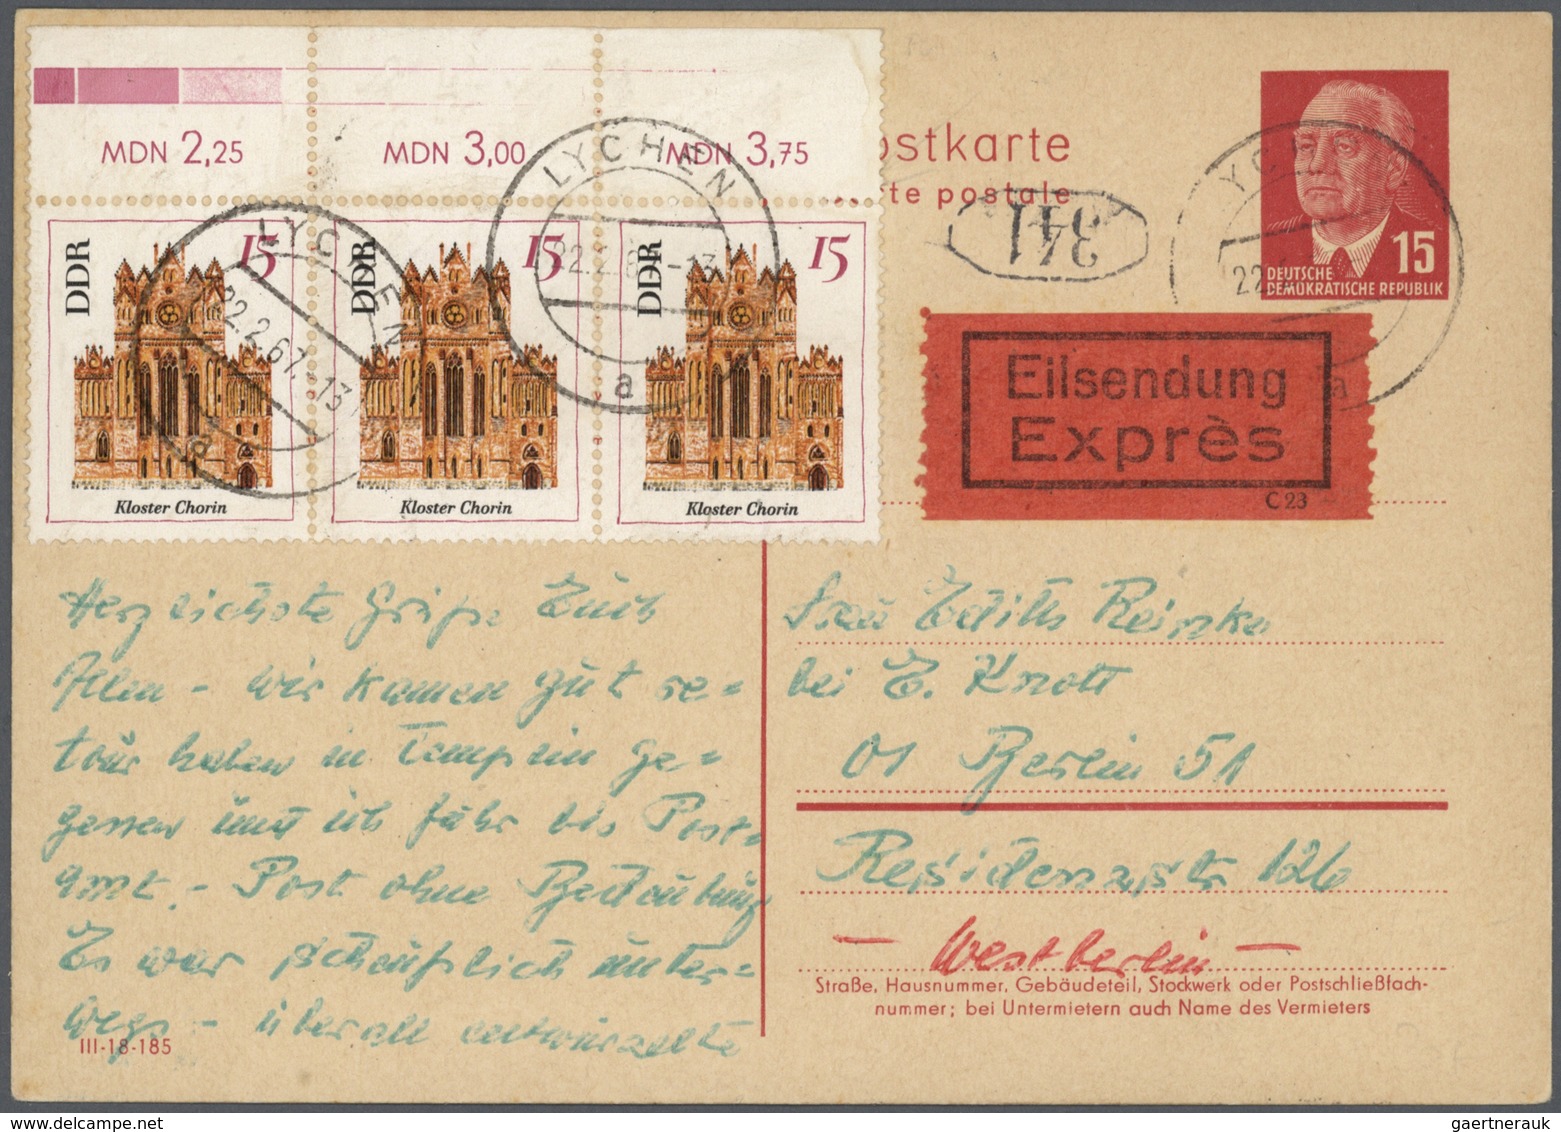 MDN 2,25 MDN 3,00 MDN 3,75
DDR 15 Kloster Chorin
DDR 15 Kloster Chorin
DDR 15 Kloster Chorin
LYCHEN 22.2.67.-13 a
LYCHEN 22.2.6 -13 a
ostkarte
te postale
341
YCH 22. a
15
DEUTSCHE
DEMOKRATISCHE REPUBLIK
Eilsendung
Exprès
C 23
Herzlichste Grüße Euch
Allen - wir kamen gut re=
tour haben in Templin ge=
gessen und ich fuhr bis Post=
amt. - Post ohne Bedeutung
Es war scheußlich unter=
wegs - überall entwurzelte
III-18-185
Frau Edith Reinke
bei E. Knott
01 Berlin 51
Residenzstr 126
- Westberlin -
Straße, Hausnummer, Gebäudeteil, Stockwerk oder Postschließfach-
nummer; bei Untermietern auch Name des Vermieters
gaertnerauk